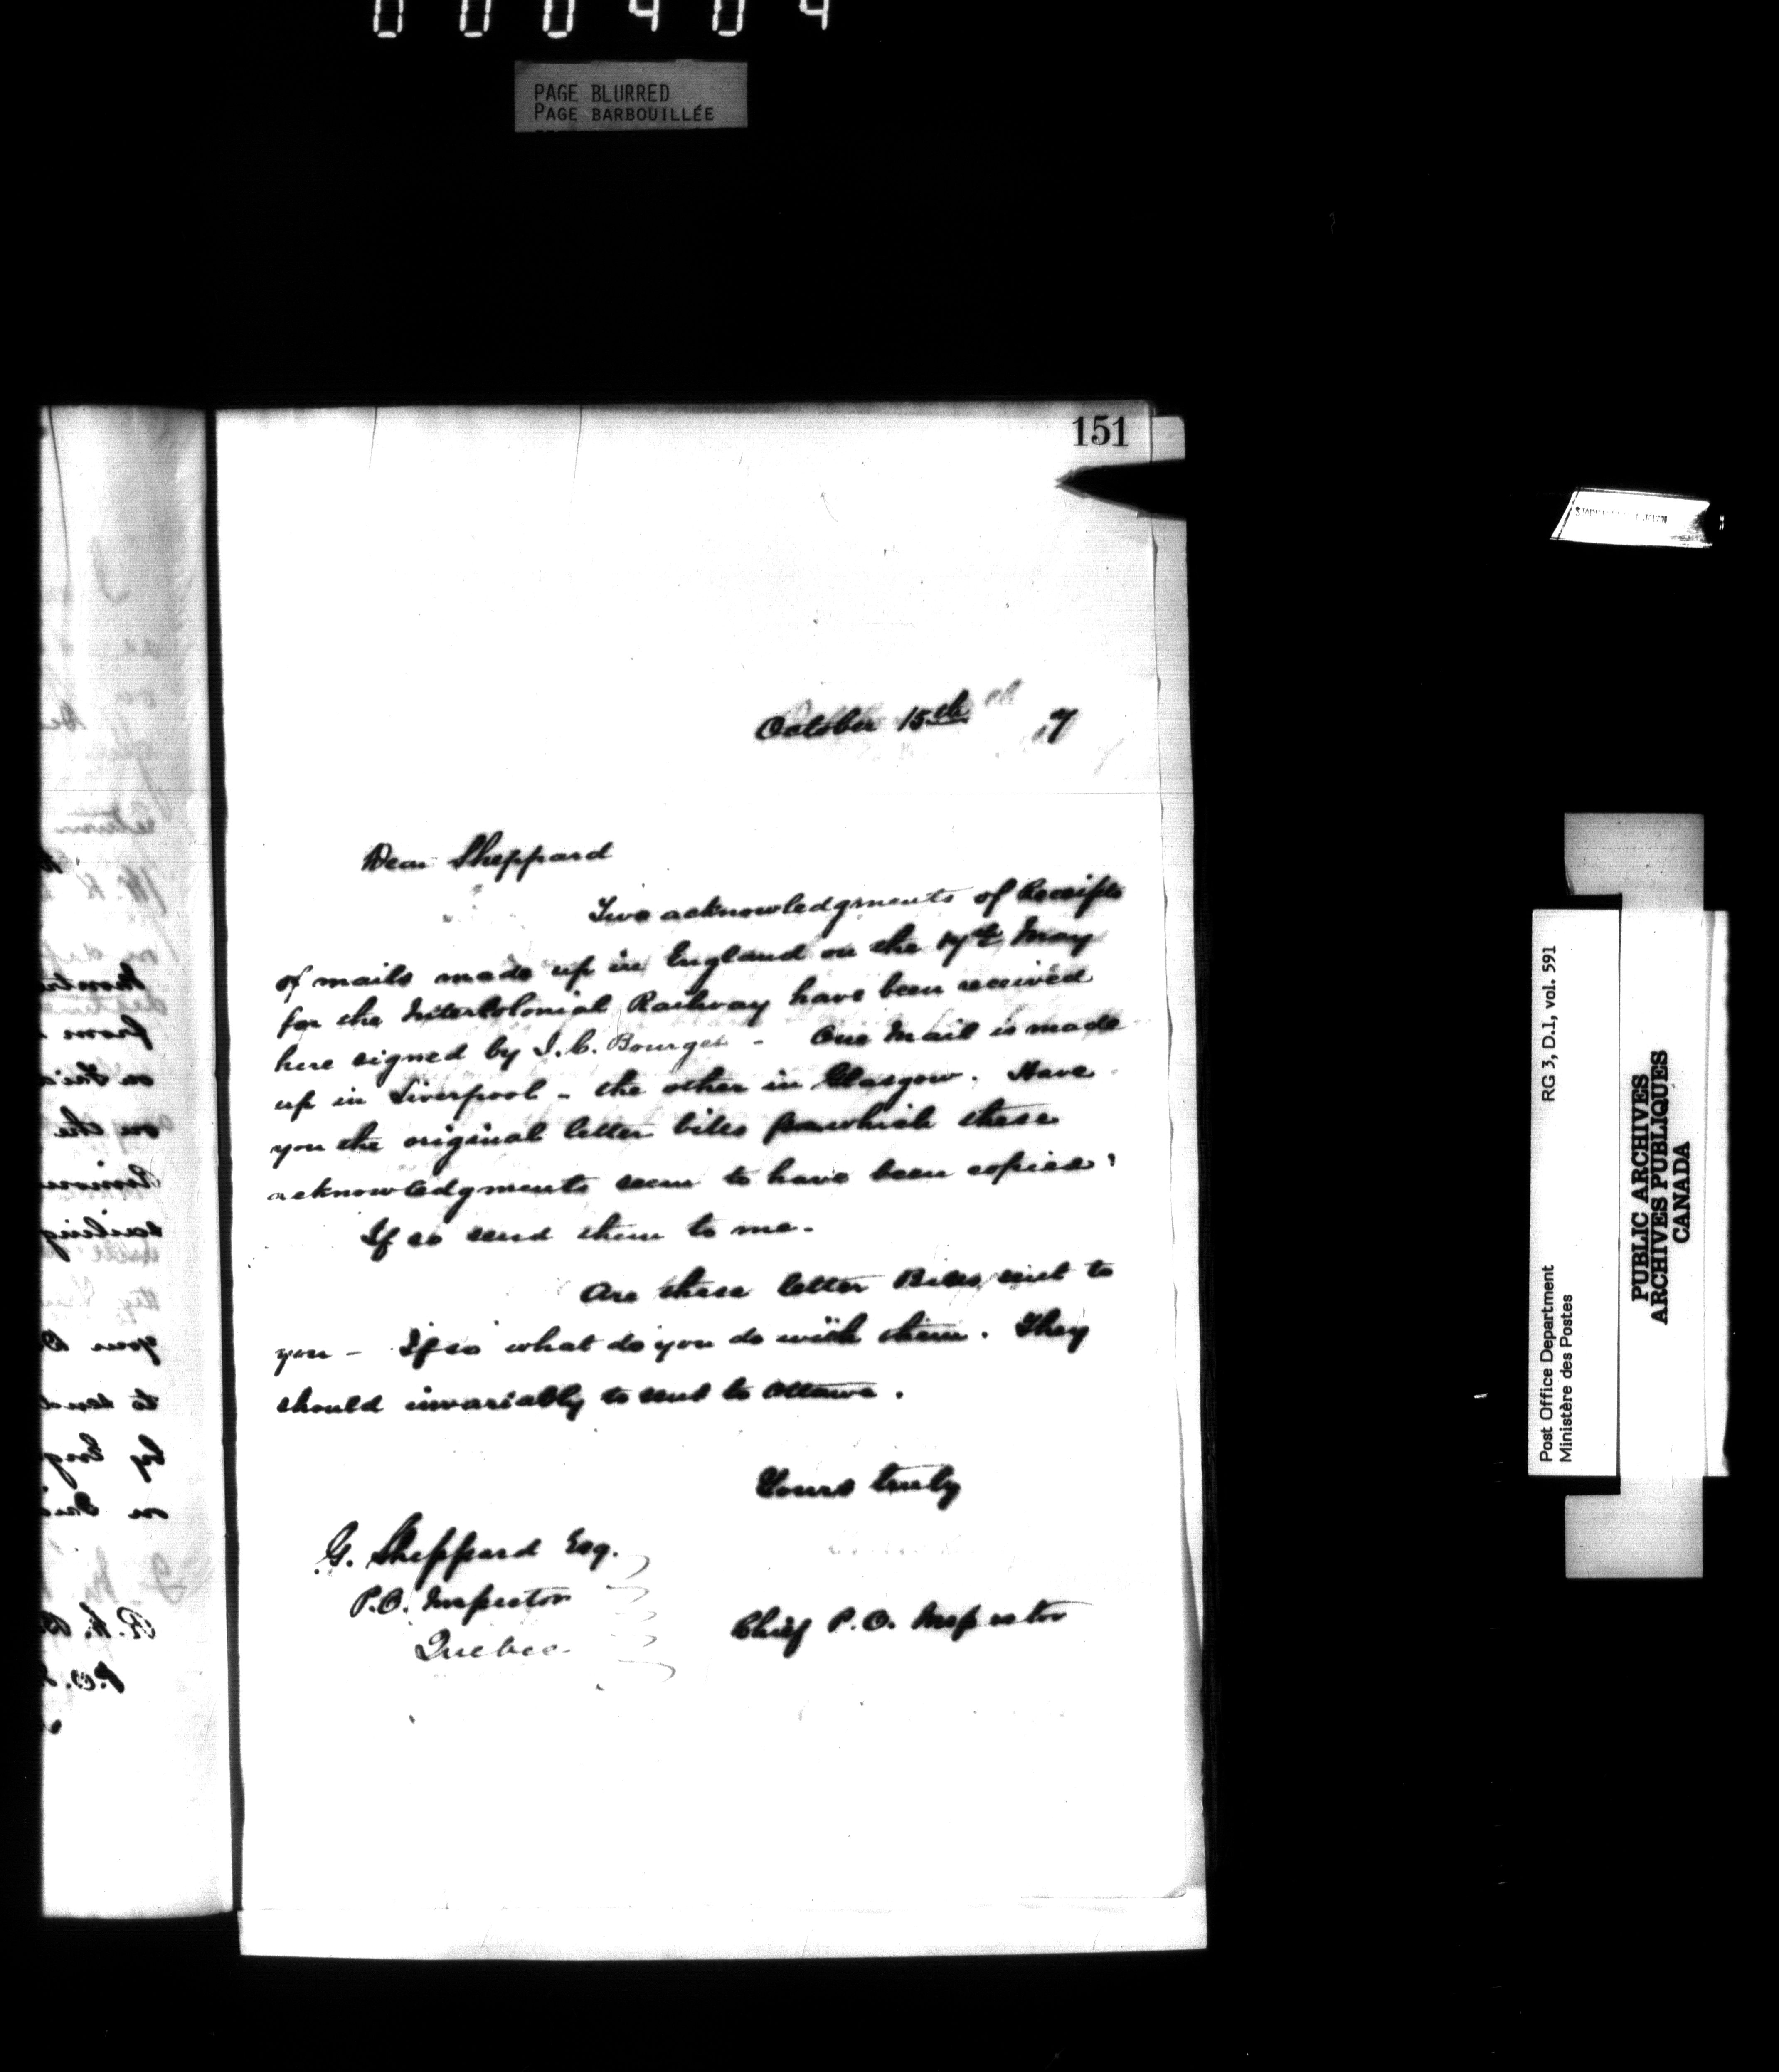 000404
PAGE BLURRED
PAGE BARBOUILLÉE
151
October 15th 7
Dear Sheppard
Two acknowledgments of Receipts
of mails made up in England on the 17th May
for the Intercolonial Railway have been received
here signed by J. C. Bourget - One Mail is made
up in Liverpool - the other in Glasgow. Have
you the original letter bills from which these
acknowledgments seem to have been copied?
If so send them to me.
Are these letter Bills sent to
you - If so what do you do with them. They
should invariably to sent to Ottawa.
Yours truly
G. Sheppard Esq.
P.O. Inspector
Quebec
Chief P.O. Inspector
RG 3, D.1, vol. 591
Post Office Department
Ministère des Postes
PUBLIC ARCHIVES
ARCHIVES PUBLIQUES
CANADA